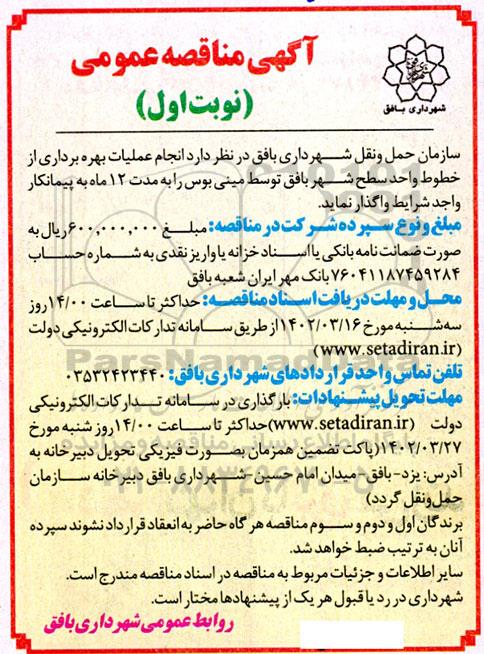 آگهی مناقصه عمومی
(نوبت اول)
شهرداری بافق
سازمان حمل ونقل شهرداری بافق در نظر دارد انجام عملیات بهره برداری از
خطوط واحد سطح شهر بافق توسط مینی بوس را به مدت ۱۲ ماه به پیمانکار
واجد شرایط واگذار نماید.
مبلغ و نوع سپرده شرکت در مناقصه: مبلغ ۶۰۰,۰۰۰,۰۰۰ ریال به
صورت ضمانت نامه بانکی یا اسناد خزانه یا واریز نقدی به شماره حساب
۷۶۰۴۱۱۸۷۴۵۹۲۸۴ بانک مهر ایران شعبه بافق
محل و مهلت دریافت اسناد مناقصه: حداکثر تا ساعت ۱۴/۰۰ روز
سه شنبه مورخ ۱۴۰۲/۰۳/۱۶ از طریق سامانه تدارکات الکترونیکی دولت
(www.setadiran.ir)
تلفن تماس واحد قراردادهای شهرداری بافق: ۰۳۵۳۲۴۲۳۴۴۰
مهلت تحویل پیشنهادات: بارگذاری در سامانه تدارکات الکترونیکی
دولت (www.setadiran.ir) حداکثر تا ساعت ۱۴/۰۰ روز شنبه مورخ
۱۴۰۲/۰۳/۲۷ (پاکت تضمین همزمان بصورت فیزیکی تحویل دبیرخانه به
آدرس: یزد- بافق- میدان امام حسین- شهرداری بافق دبیرخانه سازمان
حمل ونقل گردد)
برندگان اول و دوم و سوم مناقصه هر گاه حاضر به انعقاد قرارداد نشوند سپرده
آنان به ترتیب ضبط خواهد شد.
سایر اطلاعات و جزئیات مربوط به مناقصه در اسناد مناقصه مندرج است.
شهرداری در رد یا قبول هر یک از پیشنهادها مختار است.
روابط عمومی شهرداری بافق